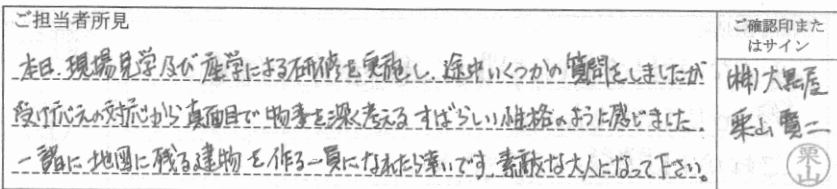 ご担当者所見
ご確認印また
はサイン
本日、現場見学及び座学による研修を実施し、途中いくつかの質問をしましたが
受け応えの対応から真面目で物事を深く考えるすばらしい性格のように感じました。
一諸に地図に残る建物を作る一員になれたら幸いです。素敵な大人になって下さい。
(株)大黒屋
栗山賢二
栗山